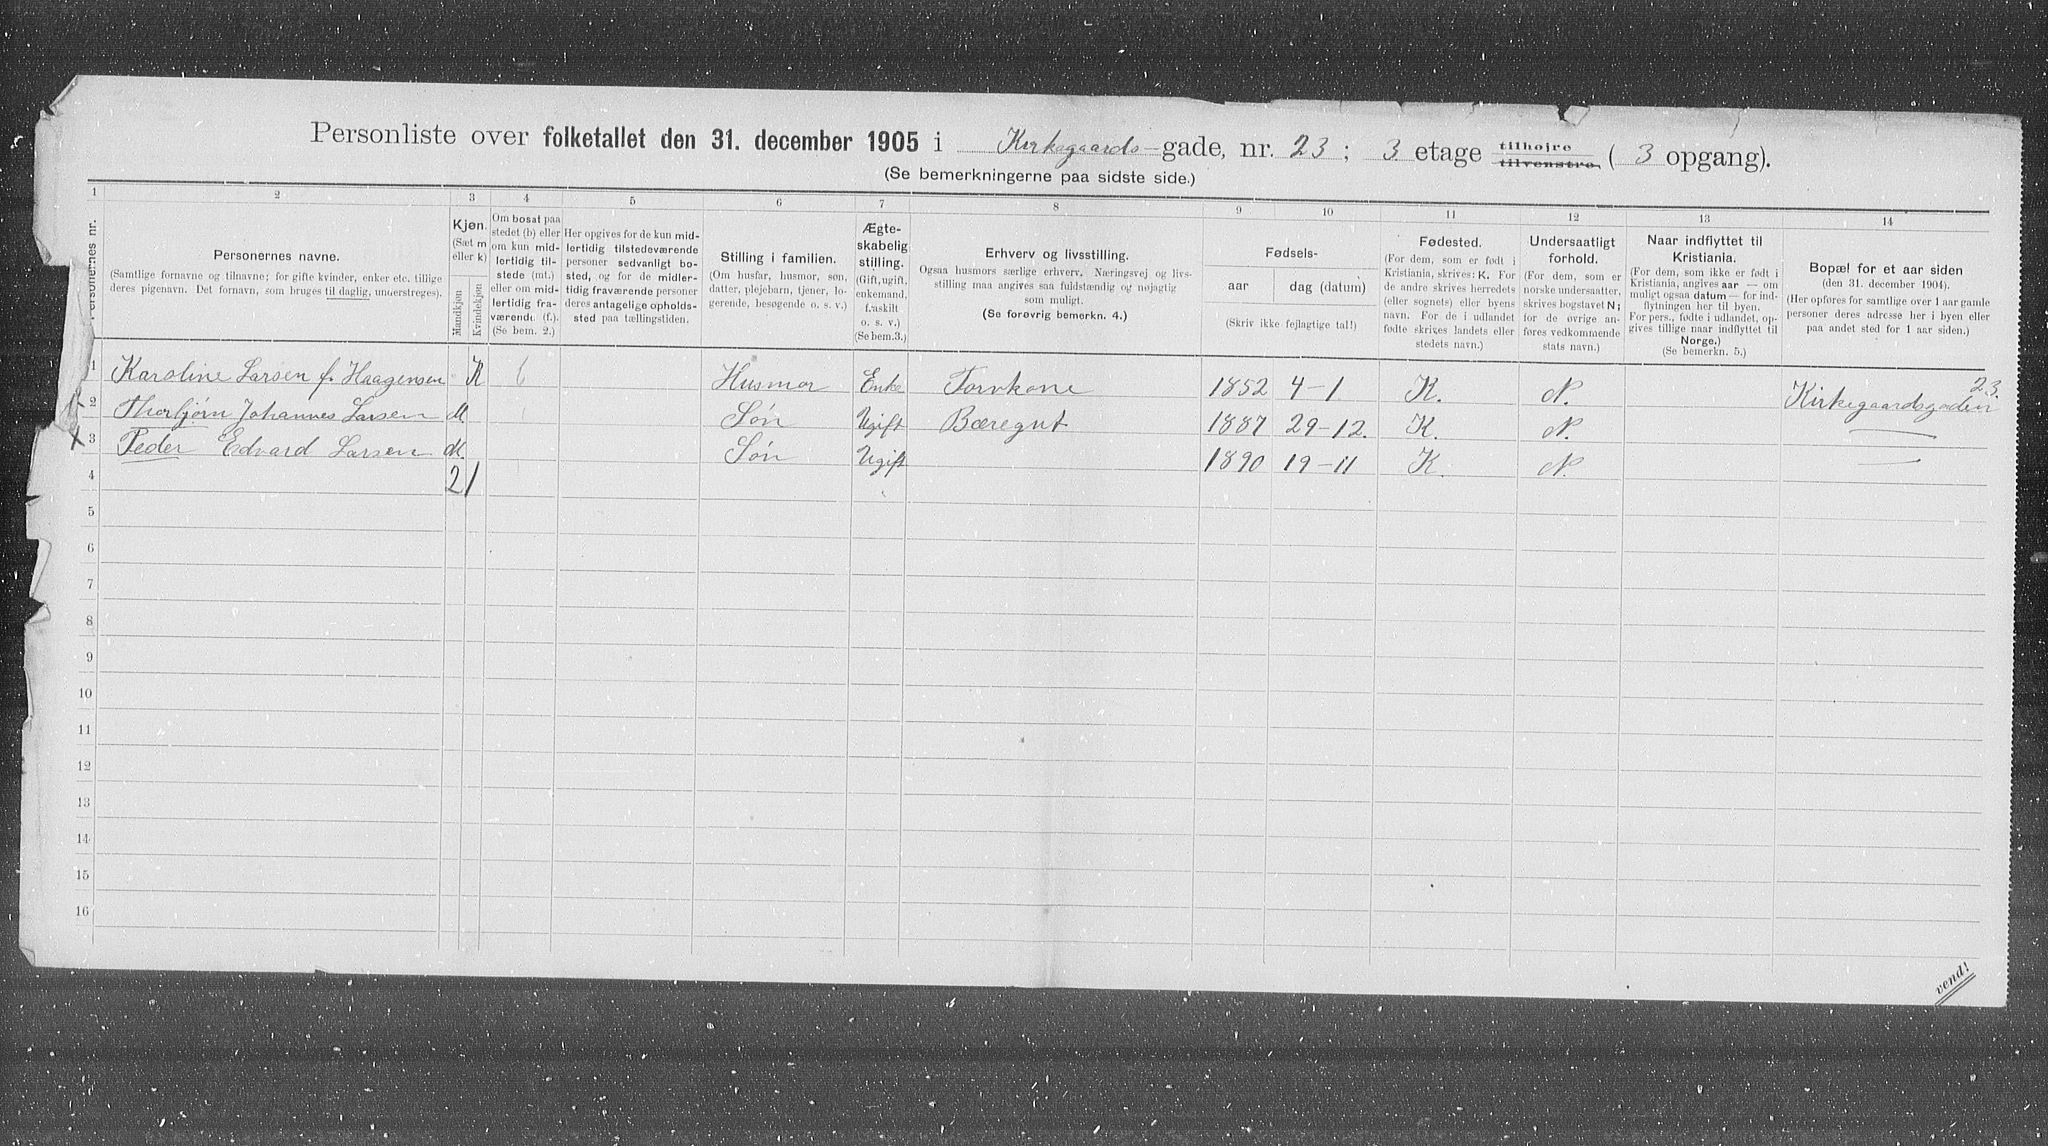 Personliste over folketallet den 31. december 1905 i Kirkegaards-gade, nr. 23; 3 etage tilhøjre tilvenstre, ( 3 opgang).
(Se bemerkningerne paa sidste side.)
1 2 3 4 5 6 7 8 9 10 11 12 13 14
Personernes nr.
Personernes navne.
(Samtlige fornavne og tilnavne; for gifte kvinder, enker etc. tillige
deres pigenavn. Det fornavn, som bruges til daglig, understreges).
Kjøn.
(Sæt m
eller k)
Mandkjøn
Kvindekjøn
Om bosat paa
stedet (b) eller
om kun mid-
lertidig til-
stede (mt.)
eller om mid-
lertidig fra-
værende (f.).
(Se bem. 2.)
Her opgives for de kun mid-
lertidig tilstedeværende
personer sedvanligt bo-
sted, og for de midler-
tidig fraværende personer
deres antagelige opholds-
sted paa tællingstiden.
Stilling i familien.
(Om husfar, husmor, søn,
datter, plejebarn, tjener, lo-
gerende, besøgende o. s. v.)
Ægte-
skabelig
stilling.
(Gift, ugift,
enkemand,
fraskilt
o. s. v.)
(Se bem.3.)
Erhverv og livsstilling.
Ogsaa husmors særlige erhverv. Næringsvej og livs-
stilling maa angives saa fuldstændig og nøjagtig
som muligt.
(Se forøvrig bemerkn. 4.)
Fødsels-
aar
dag (datum)
(Skriv ikke fejlagtige tal!)
Fødested.
(For dem, som er født i
Kristiania, skrives: K. For
de andre skrives herredets
(eller sognets) eller byens
navn. For de i udlandet
fødte skrives landets eller
stedets navn.)
Undersaatligt
forhold.
(For dem, som er
norske undersaatter,
skrives bogstavet N;
for de øvrige an-
føres vedkommende
stats navn.)
Naar indflyttet til
Kristiania.
(For dem, som ikke er født i
Kristiania, angives aar — om
muligt ogsaa datum — for ind-
flytningen her til byen.
For pers., fødte i udlandet, op-
gives tillige naar indflyttet til
Norge.)
(Se bemerkn. 5.)
Bopæl for et aar siden
(den 31. december 1904).
(Her opføres for samtlige over 1 aar gamle
personer deres adresse her i byen eller
paa andet sted for 1 aar siden.)
1 Karoline Larsen f. Haagensen K b Husmor Enke Torvkone 1852 4-1 K. N. Kirkegaardsgaden 23.
2 Thorbjørn Johannes Larsen M. Søn Ugift Bæregut 1887 29-12. K. N. —
3 Peder Edvard Larsen M. Søn Ugift 1890 19-11 K. N. —
4 2 1
5
6
7
8
9
10
11
12
13
14
15
16
vend!